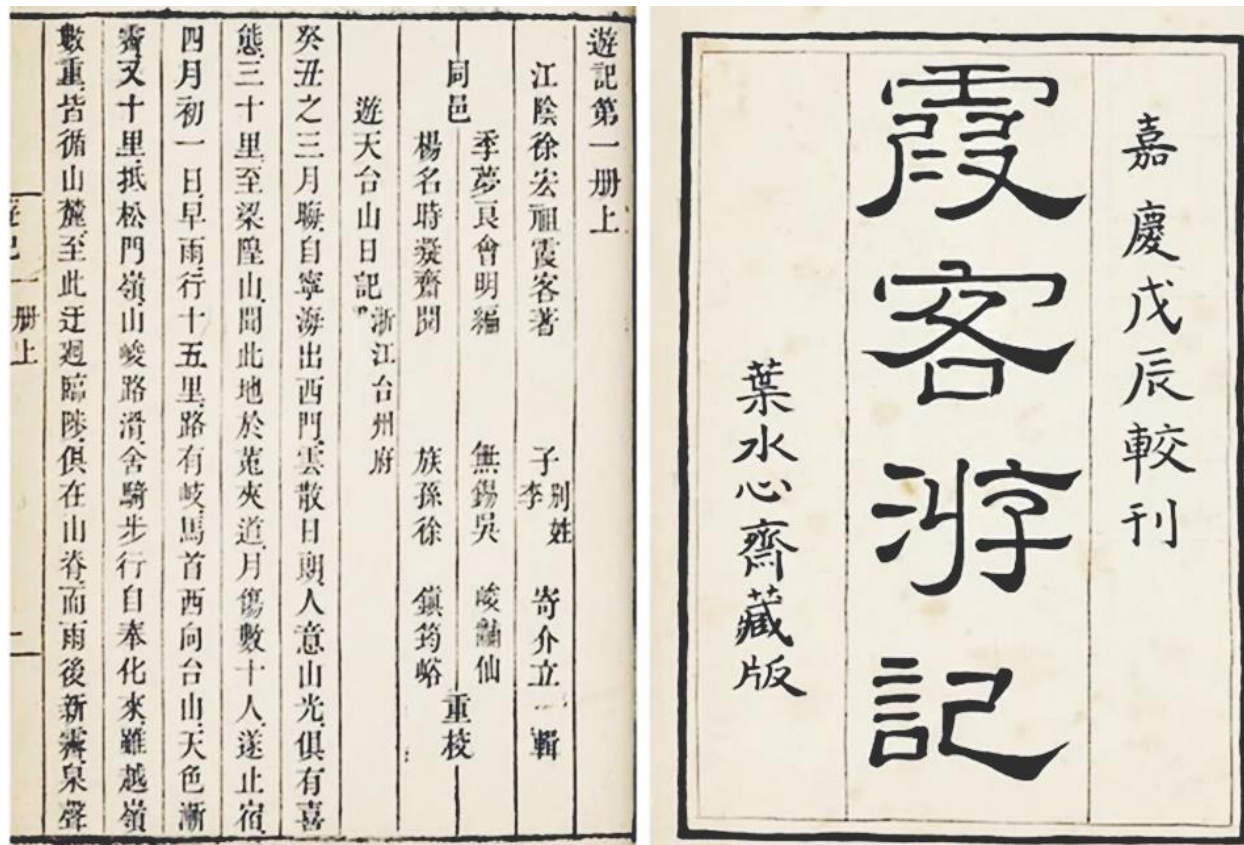 嘉慶戊辰較刊
霞客游記
葉水心齋藏版
遊記第一册上
江陰徐宏祖霞客著 子 李別姓 寄介立輯
同邑
季夢良會明編 無錫吳峻 仙
楊名時凝齋閱 族孫徐鎮筠峪
重校
遊天台山日記 浙江台州府
癸丑之三月晦自寧海出西門雲散日朗人意山光俱有喜
態三十里至梁隍山聞此地於菟夾道月傷數十人遂止宿
四月初一日早雨行十五里路有岐馬首西向台山天色漸
霽又十里抵松門嶺山峻路滑舍騎步行自奉化來雖越嶺
數重皆循山麓至此迂迴臨陟俱在山脊而雨後新霽泉聲
遊記一册上